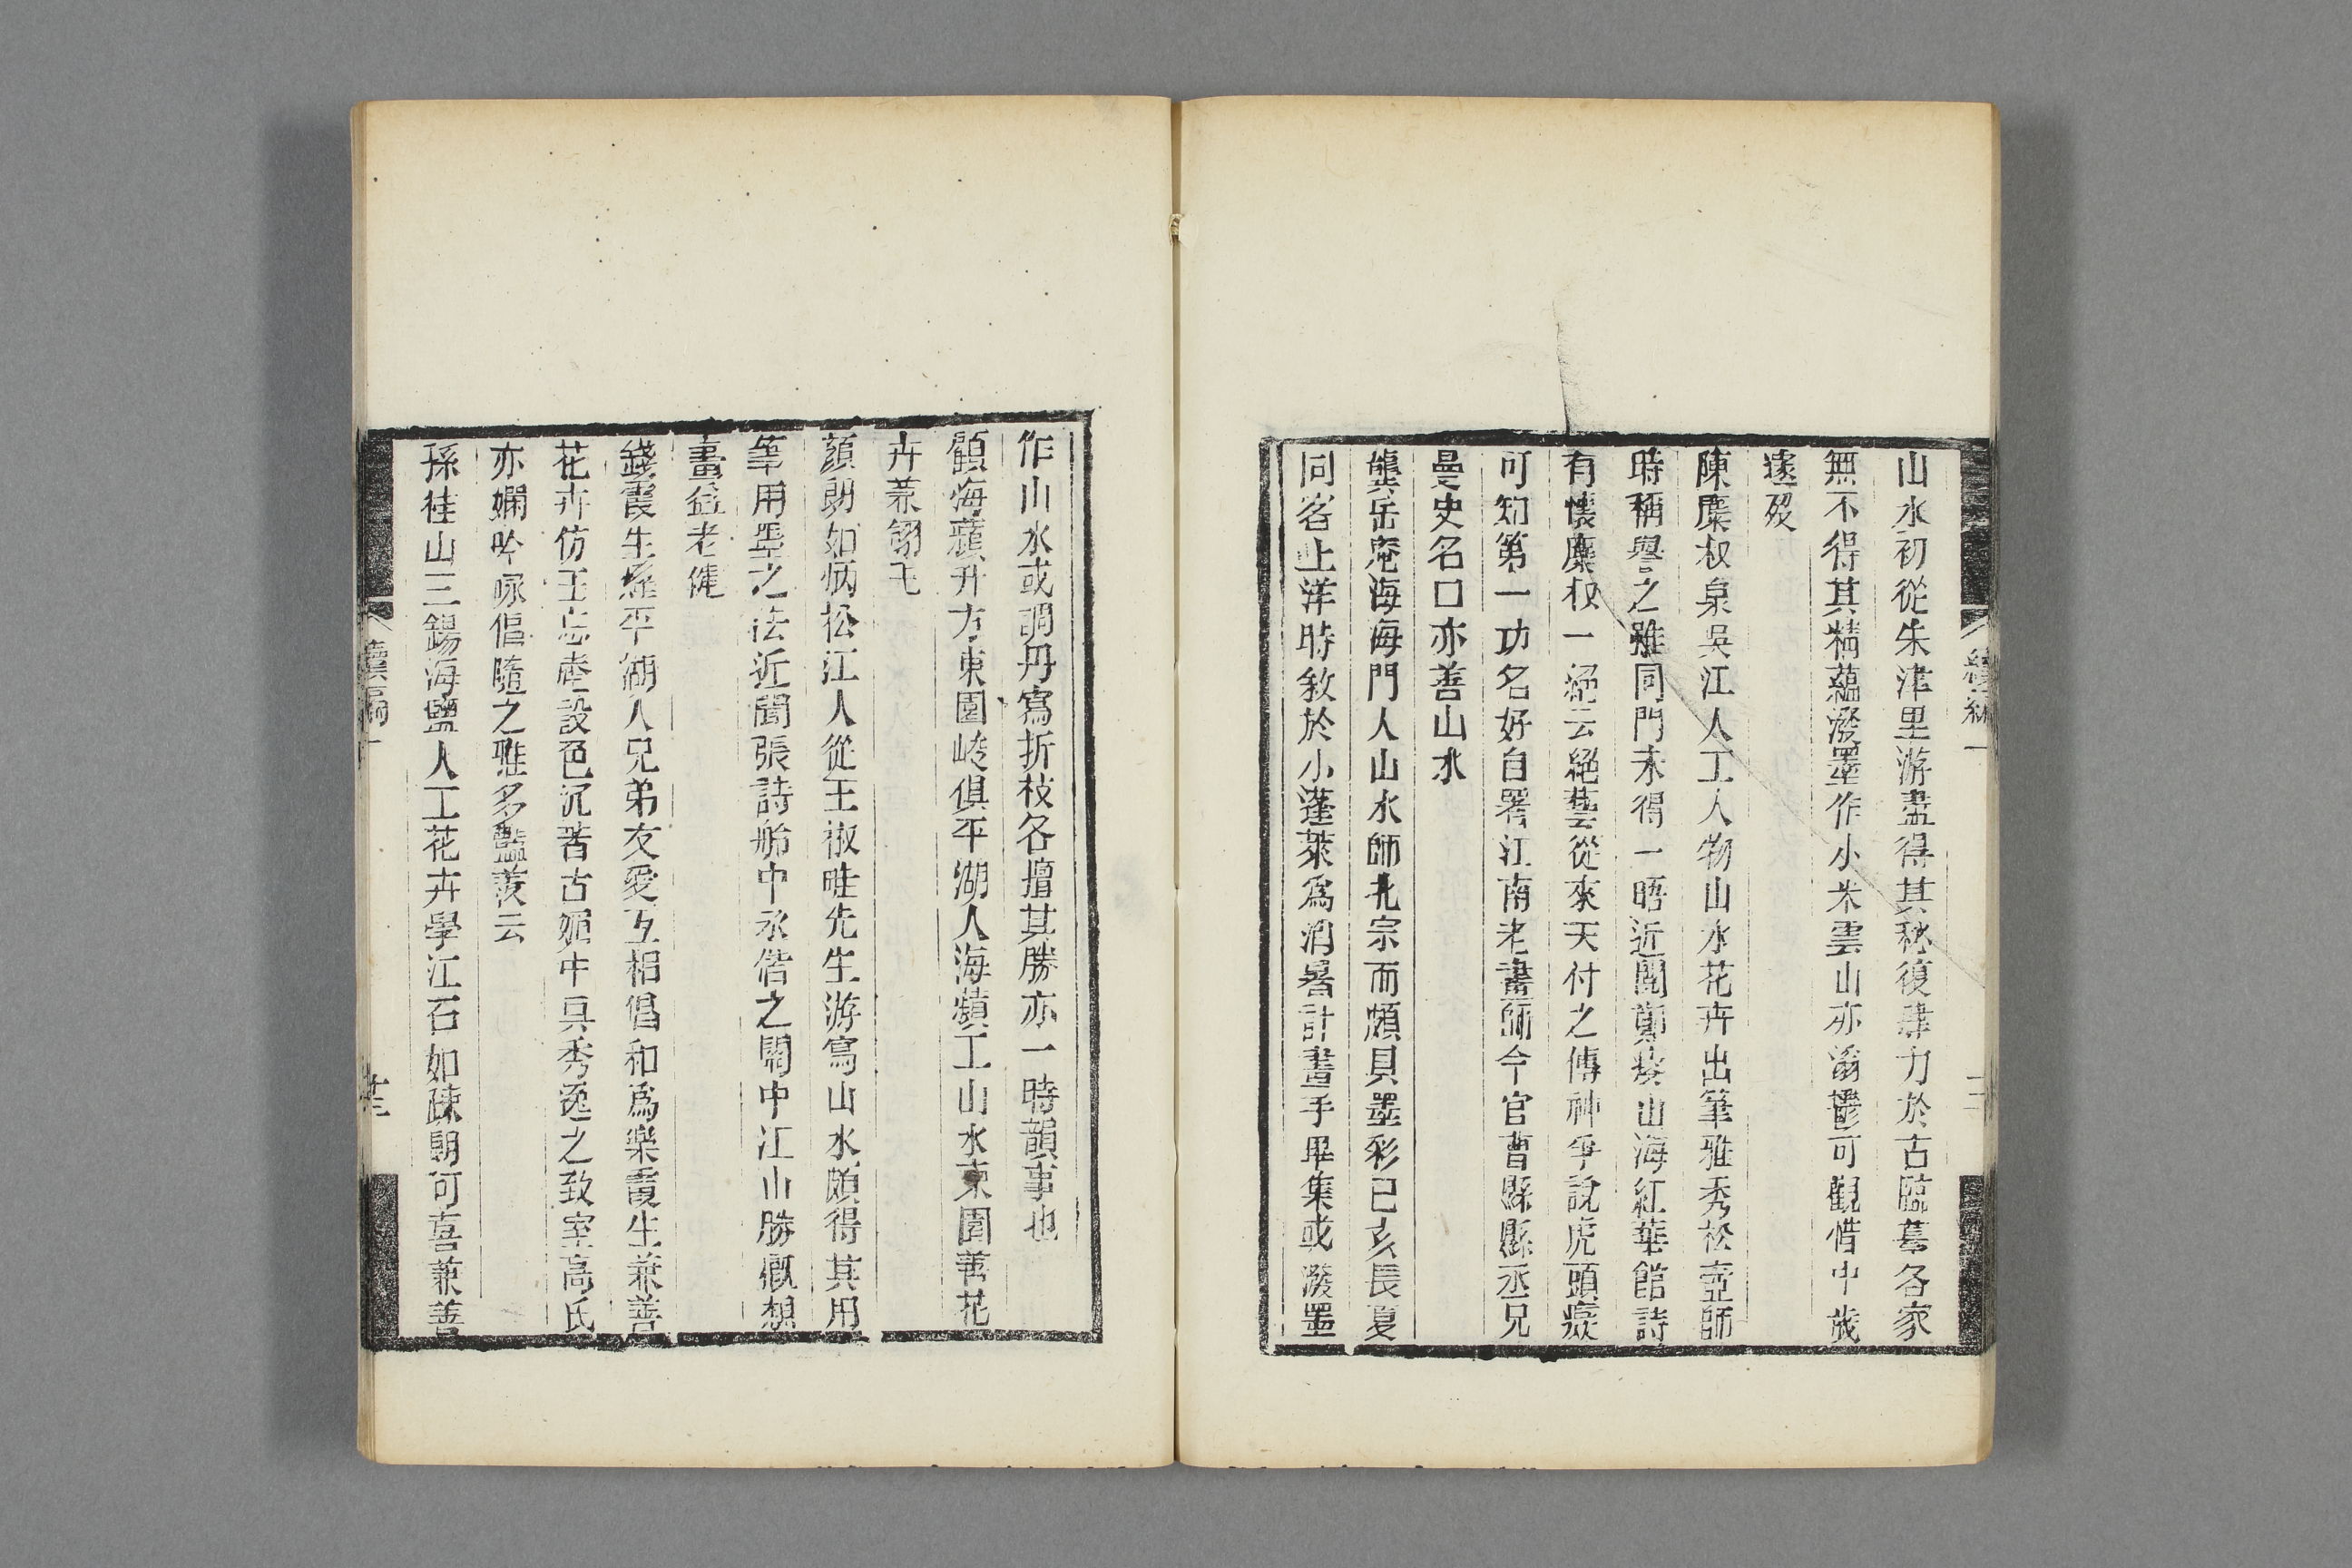 山水初從朱津里游盡得其秘復肆力於古臨摹各家
無不得其精蘊潑墨作小米雲山亦滃鬱可觀惜中歲
遽歿
陳麋叔泉吳江人工人物山水花卉出筆雅秀松壺師
時稱譽之雖同門未得一晤近閱鄭癡山海紅華館詩
有懷麋叔一絕云絕藝從來天付之傳神爭說虎頭癡
可知第一功名好自署江南老畫師今官曹縣縣丞兄
曼史名口亦善山水
龔岳庵海海門人山水師北宗而頗具墨彩己亥長夏
同客上洋時敘於小蓬萊為消暑計畫手畢集或潑墨
續編一
作山水或調丹寫折枝各擅其勝亦一時韻事也
顧海蘋升方東園峻俱平湖人海蘋工山水東園善花
卉兼翎毛
顏朗如炳松江人從王椒畦先生游寫山水頗得其用
筆用墨之法近聞張詩舲中丞偕之關中江山勝概想
畫益老健
錢霞生 平湖人兄弟友愛互相倡和為樂霞生兼善
花卉仿王忘庵設色沉著古媚中具秀逸之致室高氏
亦嫻吟咏倡隨之雅多豔羨云
孫桂山三錫海鹽人工花卉學江石如疎朗可喜兼善
續編一